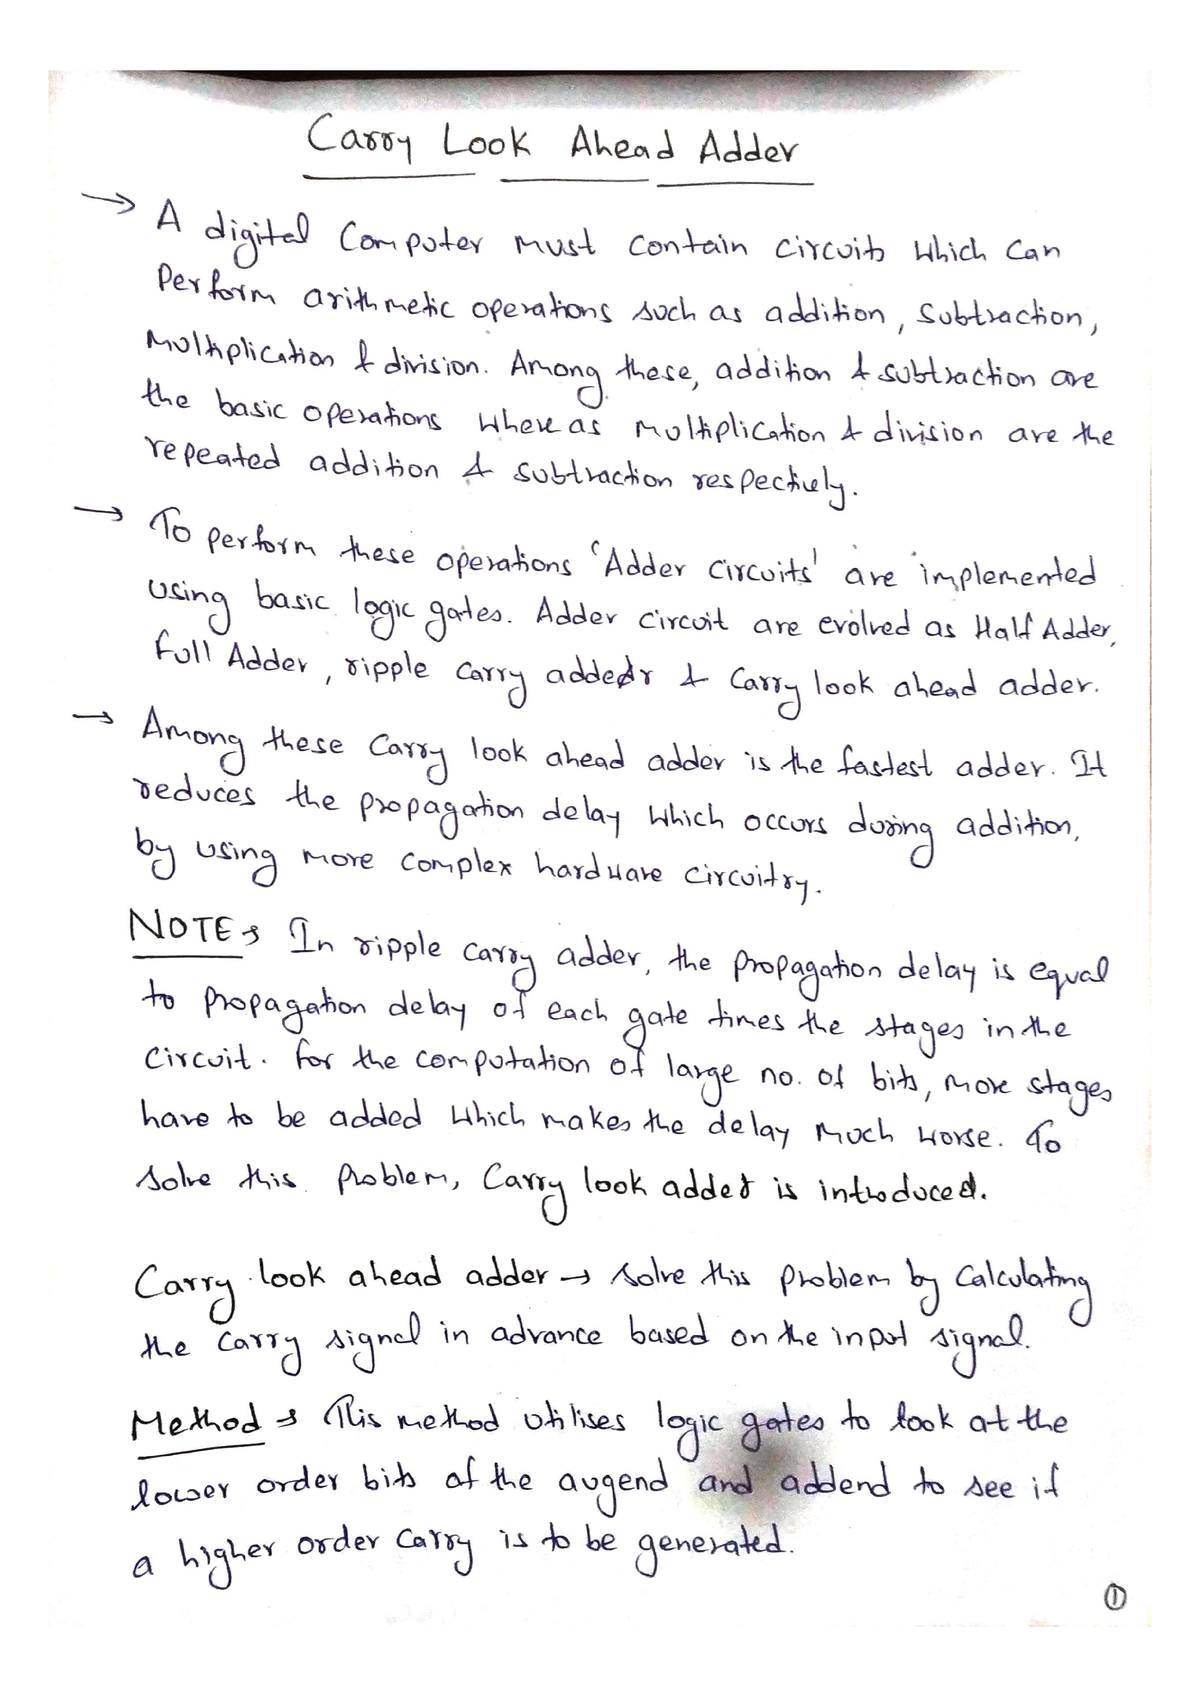 Carry Look Ahead Adder
→ A digital Computer must contain circuits which can
Perform arithmetic operations such as addition, Subtraction,
Multiplication & division. Among these, addition & subtraction are
the basic operations where as multiplication & division are the
repeated addition & subtraction respectively.
→ To perform these operations 'Adder circuits' are implemented
using basic logic gates. Adder circuit are evolved as Half Adder,
Full Adder, ripple carry adder & Carry look ahead adder.
→ Among these Carry look ahead adder is the fastest adder. It
reduces the propagation delay which occurs during addition,
by using more complex hardware circuitry.
NOTE → In ripple carry adder, the propagation delay is equal
to propagation delay of each gate times the stages in the
circuit. For the computation of large no. of bits, more stages
have to be added which makes the delay much worse. To
solve this problem, Carry look adder is introduced.
Carry look ahead adder → solve this problem by Calculating
the carry signal in advance based on the input signal.
Method → This method utilises logic gates to look at the
lower order bits of the augend and addend to see if
a higher order carry is to be generated.
①